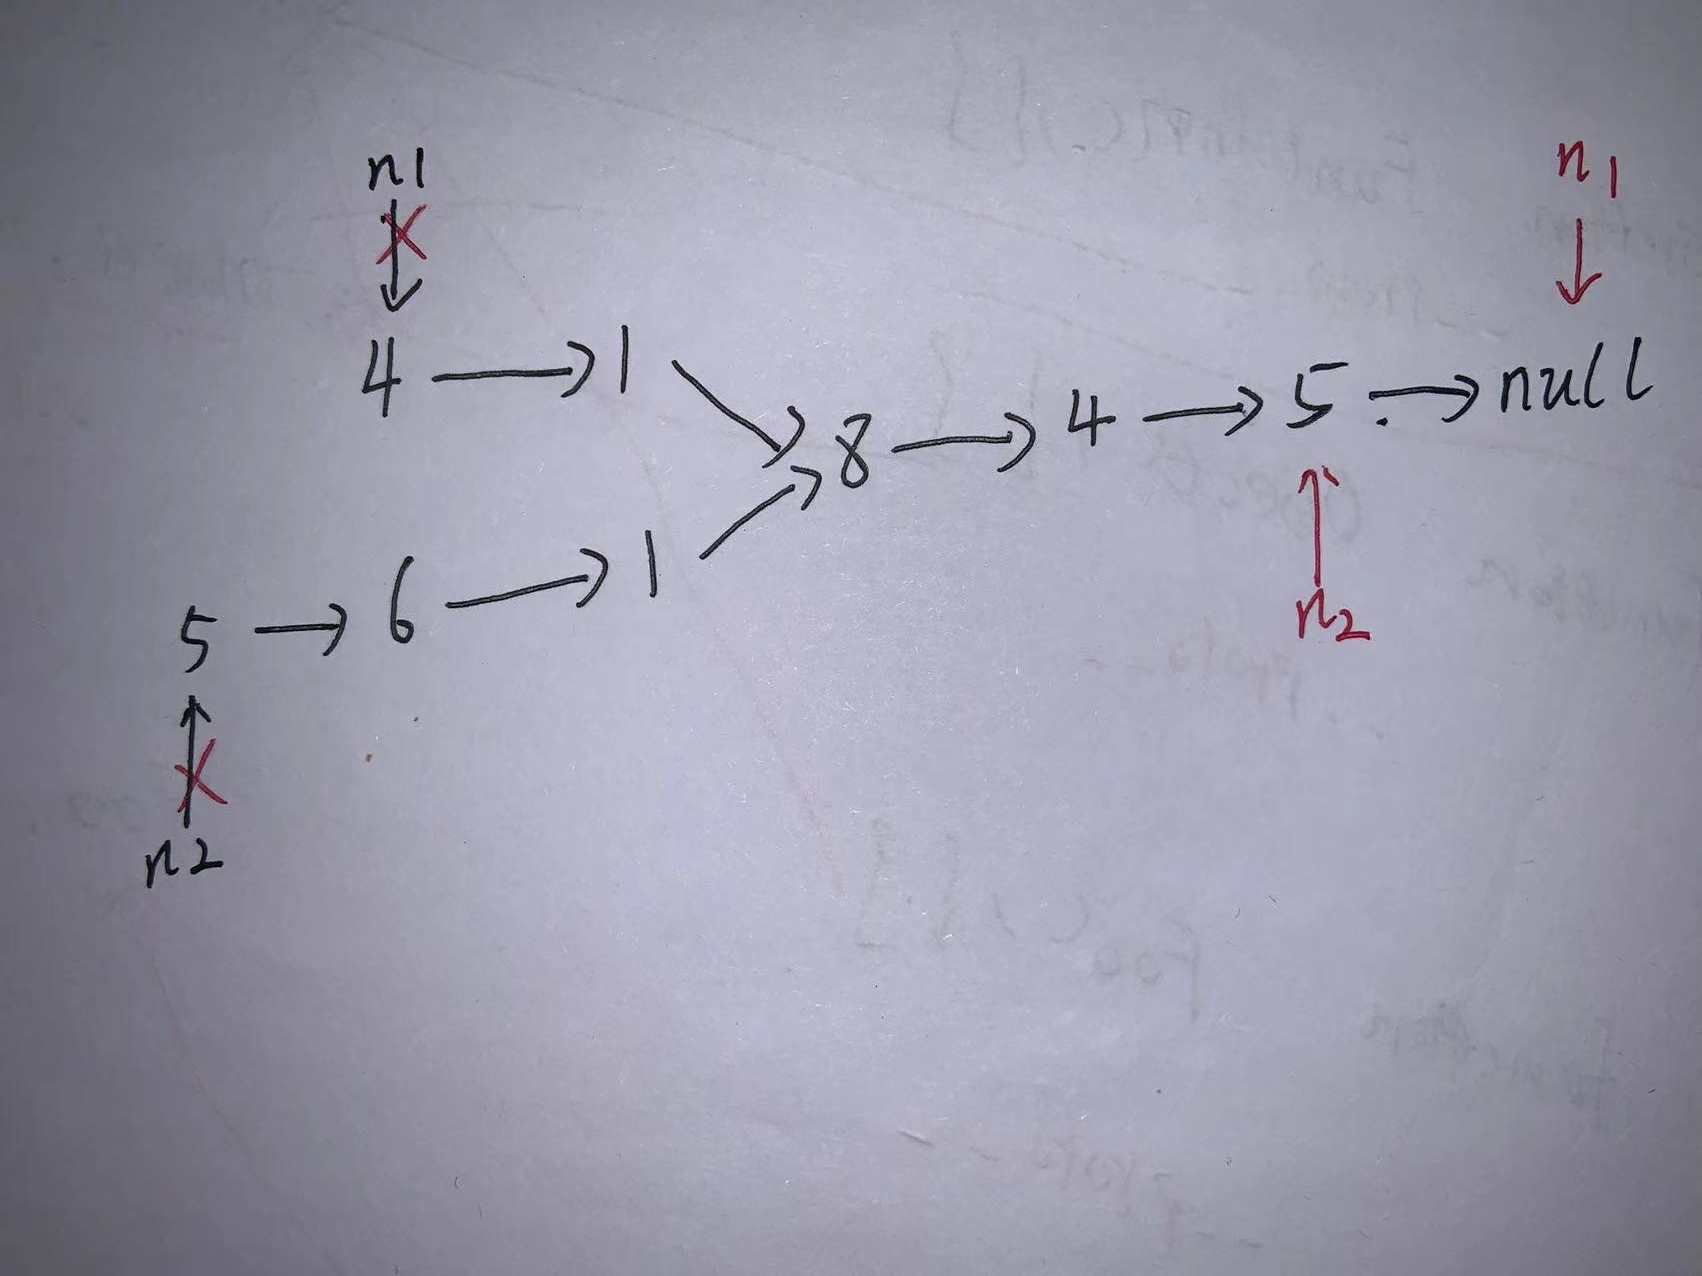 n1
n1
4 → 1
8 → 4 → 5 → null
5 → 6 → 1
n2
n2